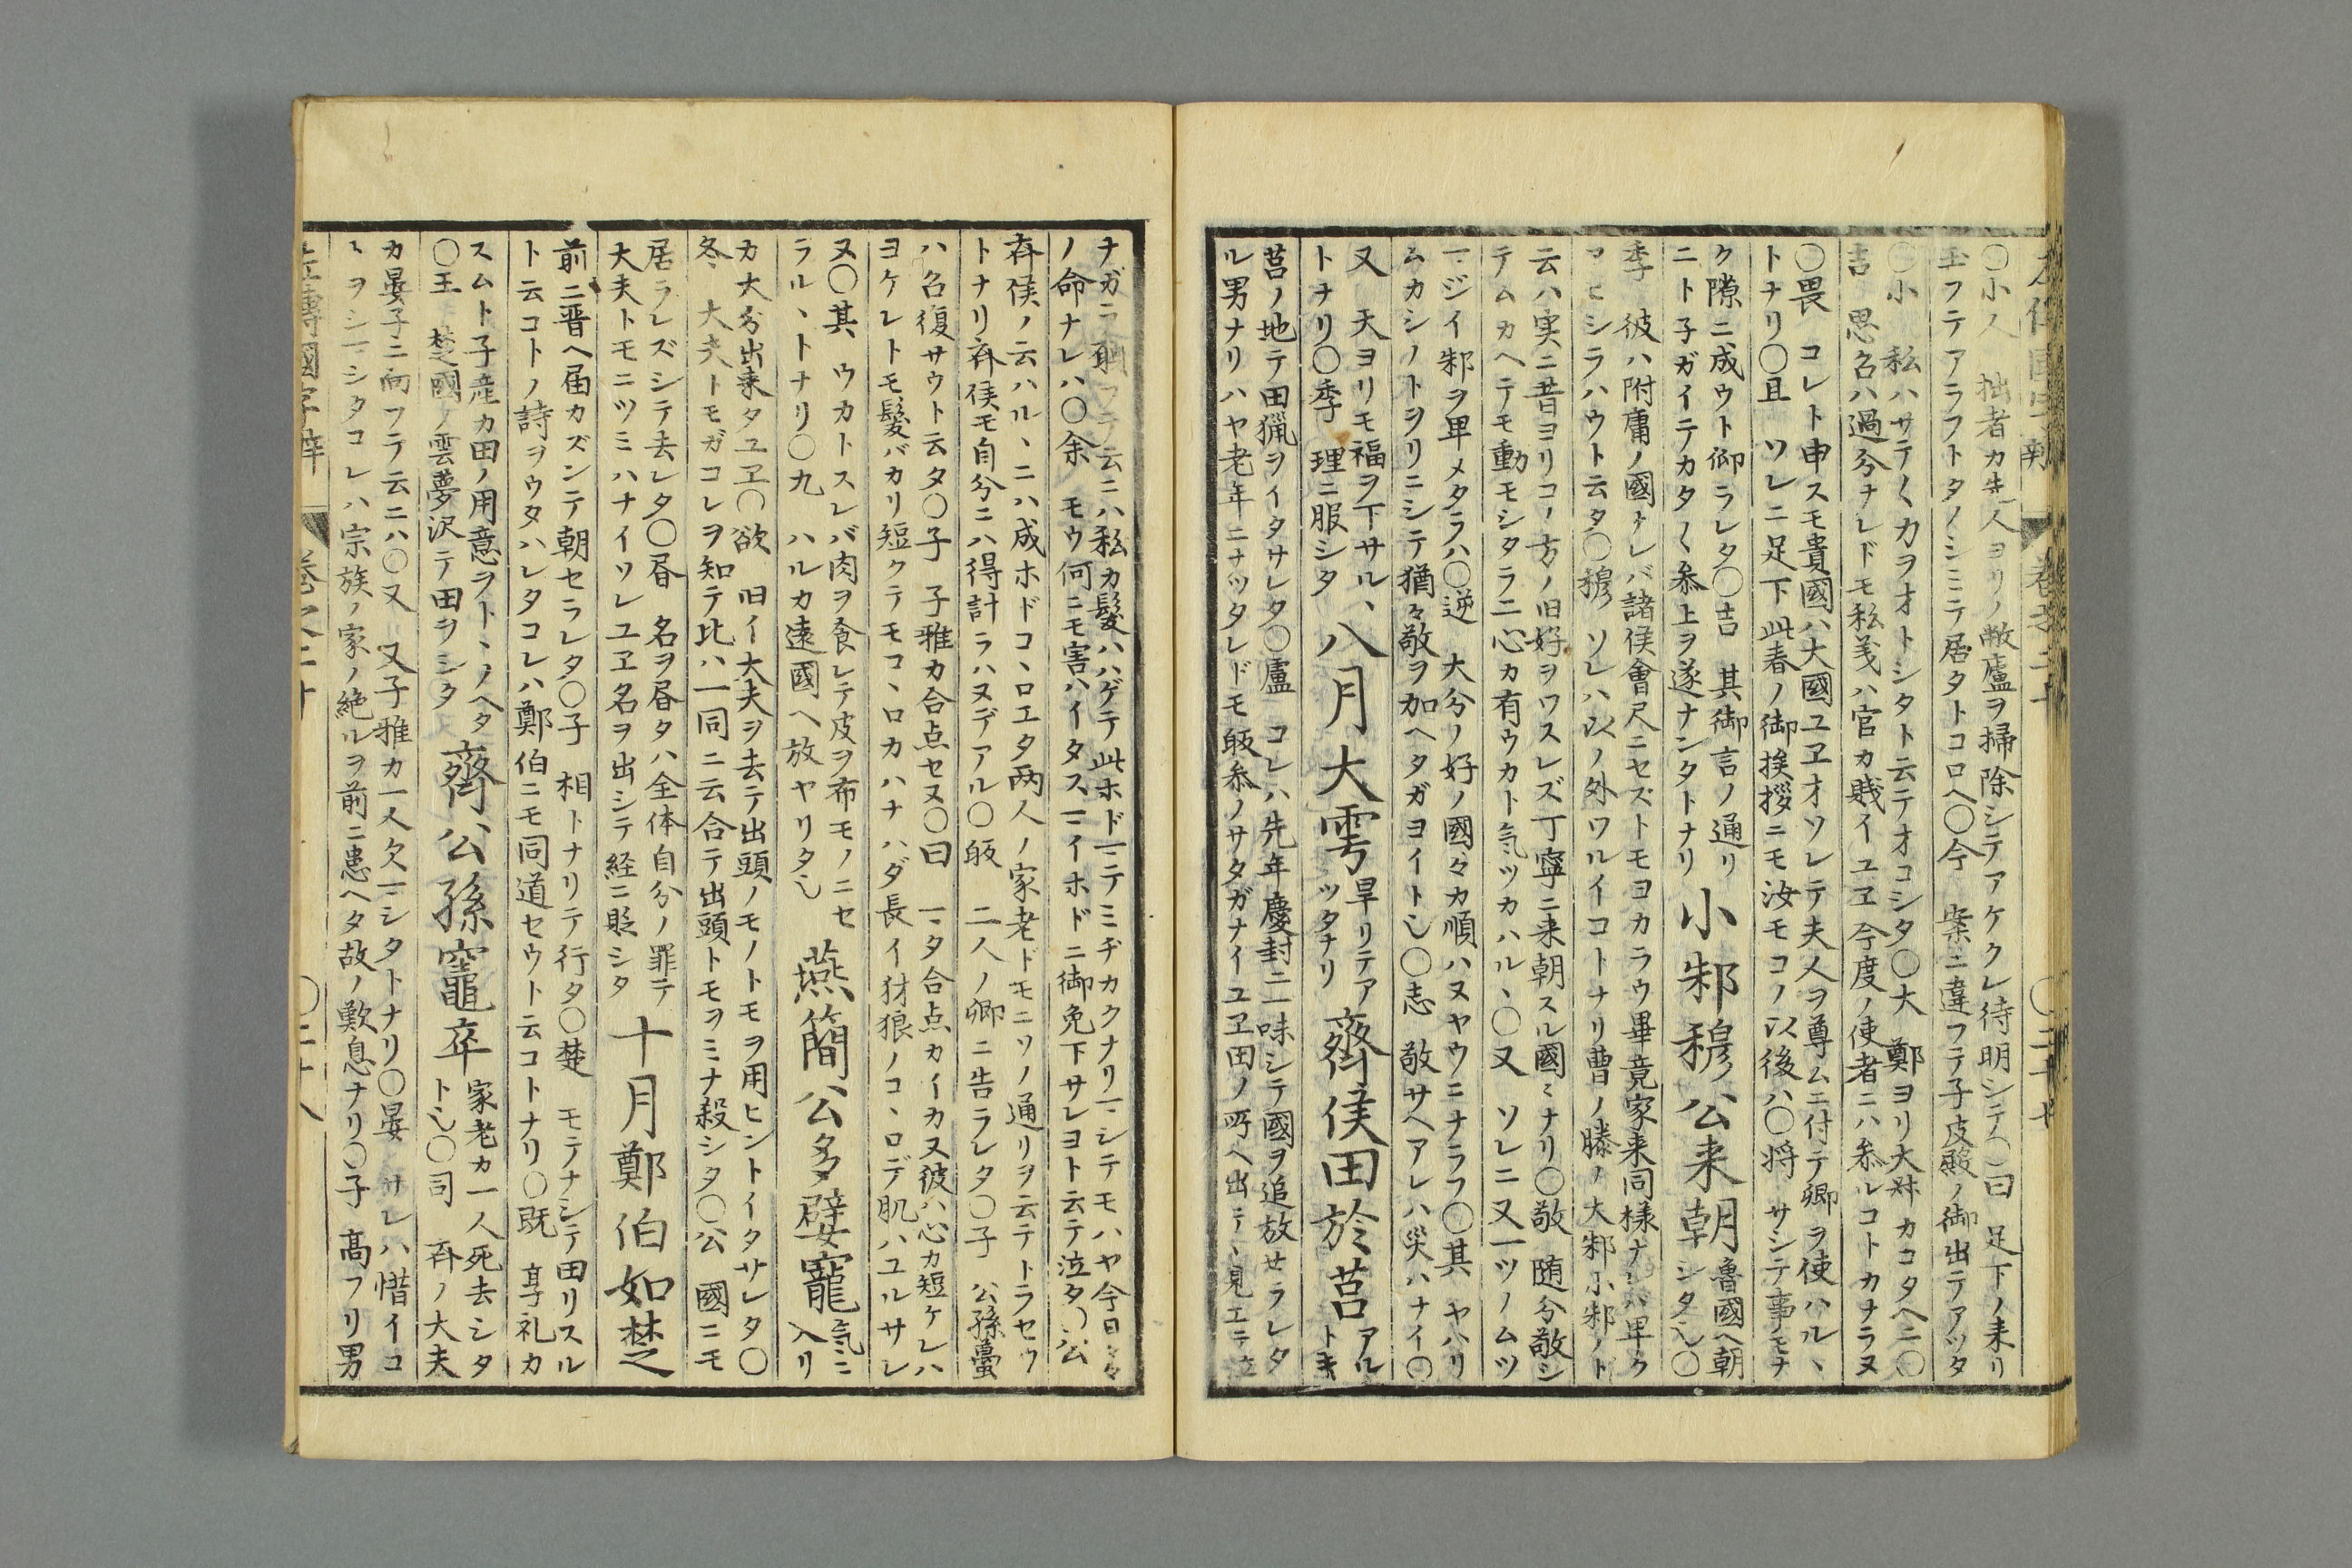 左傳國字辯 卷之二十 〇二十七
〇小人 拙者カ先人ヨリノ敝廬ヲ掃除シテアケクレ待明シテ〇曰 足下ノ来リ
玉フテアラフトタノシミテ居タトコロヘ〇今 案ニ違フテ子皮殿ノ御出テアツタ
〇小 私ハサテ〱カヲオトシタト云テオコシタ〇大 鄭ヨリ大叔カコタヘニ〇
吉 思召ハ過分ナレドモ私義ハ官カ賎イユヱ今度ノ使者ニハ参ルコトカナラヌ
〇畏 コレト申スモ貴國ハ大國ユヱオソレテ夫人ヲ尊ムニ付テ卿ヲ使ハル丶
トナリ〇且 ソレニ足下此春ノ御挨拶ニモ汝モコノ以後ハ〇将 サシテ事モナ
ク隙ニ成ウト仰ラレタ〇吉 其御言ノ通リ
ニト子ガイテカタ〱参上ヲ遂ナンタトナリ
小邾穆公来朝
魯國ヘ朝
シタ乄〇
季 彼ハ附庸ノ國ナレバ諸侯會尺ニセズトモヨカラウ畢竟家来同様ナレバ卑ク
マヒシラハウト云タ〇穆 ソレハ以ノ外ワルイコトナリ曹ノ滕ノ大邾小邾ノト
云ハ実ニ昔ヨリコノ方ノ旧好ヲワスレズ丁寧ニ来朝スル國ミナリ〇敬 随分敬シ
テムカヘテモ動モシタラ二心カ有ウカト気ツカハル丶〇又 ソレニ又一ツノムツ
マジイ邾ヲ卑メタラハ〇逆 大分ノ好ノ國々カ順ハヌヤウニナラフ〇其 ヤハリ
ムカシノトヲリニシテ猶々敬ヲ加ヘタガヨイト乄〇志 敬サヘアレハ災ハナイ〇
又 天ヨリモ福ヲ下サル丶
トナリ〇季 理ニ服シタ
八月大雩
旱リテア
ツタナリ
齊侯田於莒
アル
トキ
莒ノ地テ田猟ヲイタサレタ〇盧 コレハ先年慶封ニ一味シテ國ヲ追放セラレタ
ル男ナリハヤ老年ニナツタレドモ皈参ノサタガナイユヱ田ノ所ヘ出テ丶見エニ泣
ナガラ願フテ云ニハ私カ髪ハハゲテ此ホドマテミヂカクナリマシテモハヤ今日々
ノ命ナレハ〇余 モウ何ニモ害ハイタスマイホドニ御免下サレヨト云テ泣タ〇公
斉侯ノ云ハル丶ニハ成ホドコ丶ロエタ两人ノ家老ドモニソノ通リヲ云テトラセウ
トナリ斉侯モ自分ニハ得計ラハヌデアル〇皈 二人ノ卿ニ告ラレタ〇子 公孫蠆
ハ召復サウト云タ〇子 子雅カ合点セヌ〇曰 マタ合点カイカヌ彼ハ心カ短ケレハ
ヨケレトモ髪バカリ短クテモコ丶ロカハナハダ長イ犲狼ノコ丶ロデ肌ハユルサレ
ヌ〇其 ウカトスレバ肉ヲ食レテ皮ヲ布モノニセ
ラル丶トナリ〇九 ハルカ遠國ヘ放ヤリタ乄
燕簡公多嬖寵
気ニ
入リ
カ大分出来タユヱ〇欲 旧イ大夫ヲ去テ出頭ノモノトモヲ用ヒントイタサレタ〇
冬 大夫トモガコレヲ知テ比ハ一同ニ云合テ出頭トモヲミナ殺シタ〇公 國ニモ
居ラレズシテ去レタ〇昏 名ヲ昏タハ全体自分ノ罪テ
大夫トモニツミハナイソレユヱ名ヲ出シテ経ニ貶シタ
十月鄭伯如楚
前ニ晋ヘ届カズンテ朝セラレタ〇子 相トナリテ行タ〇楚 モテナシテ田リスル
ト云コトノ詩ヲウタハレタコレハ鄭伯ニモ同道セウト云コトナリ〇既 享礼カ
スムト子産カ田ノ用意ヲト丶ノヘタ
〇王 楚國ノ雲夢沢テ田ヲシタ
齊公孫竈卒
家老カ一人死去シタ
ト乄〇司 斉ノ大夫
カ晏子ニ向フテ云ニハ〇又 又子雅カ一人欠マシタトナリ〇晏 サレハ惜イコ
トヲシマシタコレハ宗族ノ家ノ絶ルヲ前ニ患ヘタ故ノ歎息ナリ〇子 髙フリ男
左傳國字辯 卷之二十 〇二十八